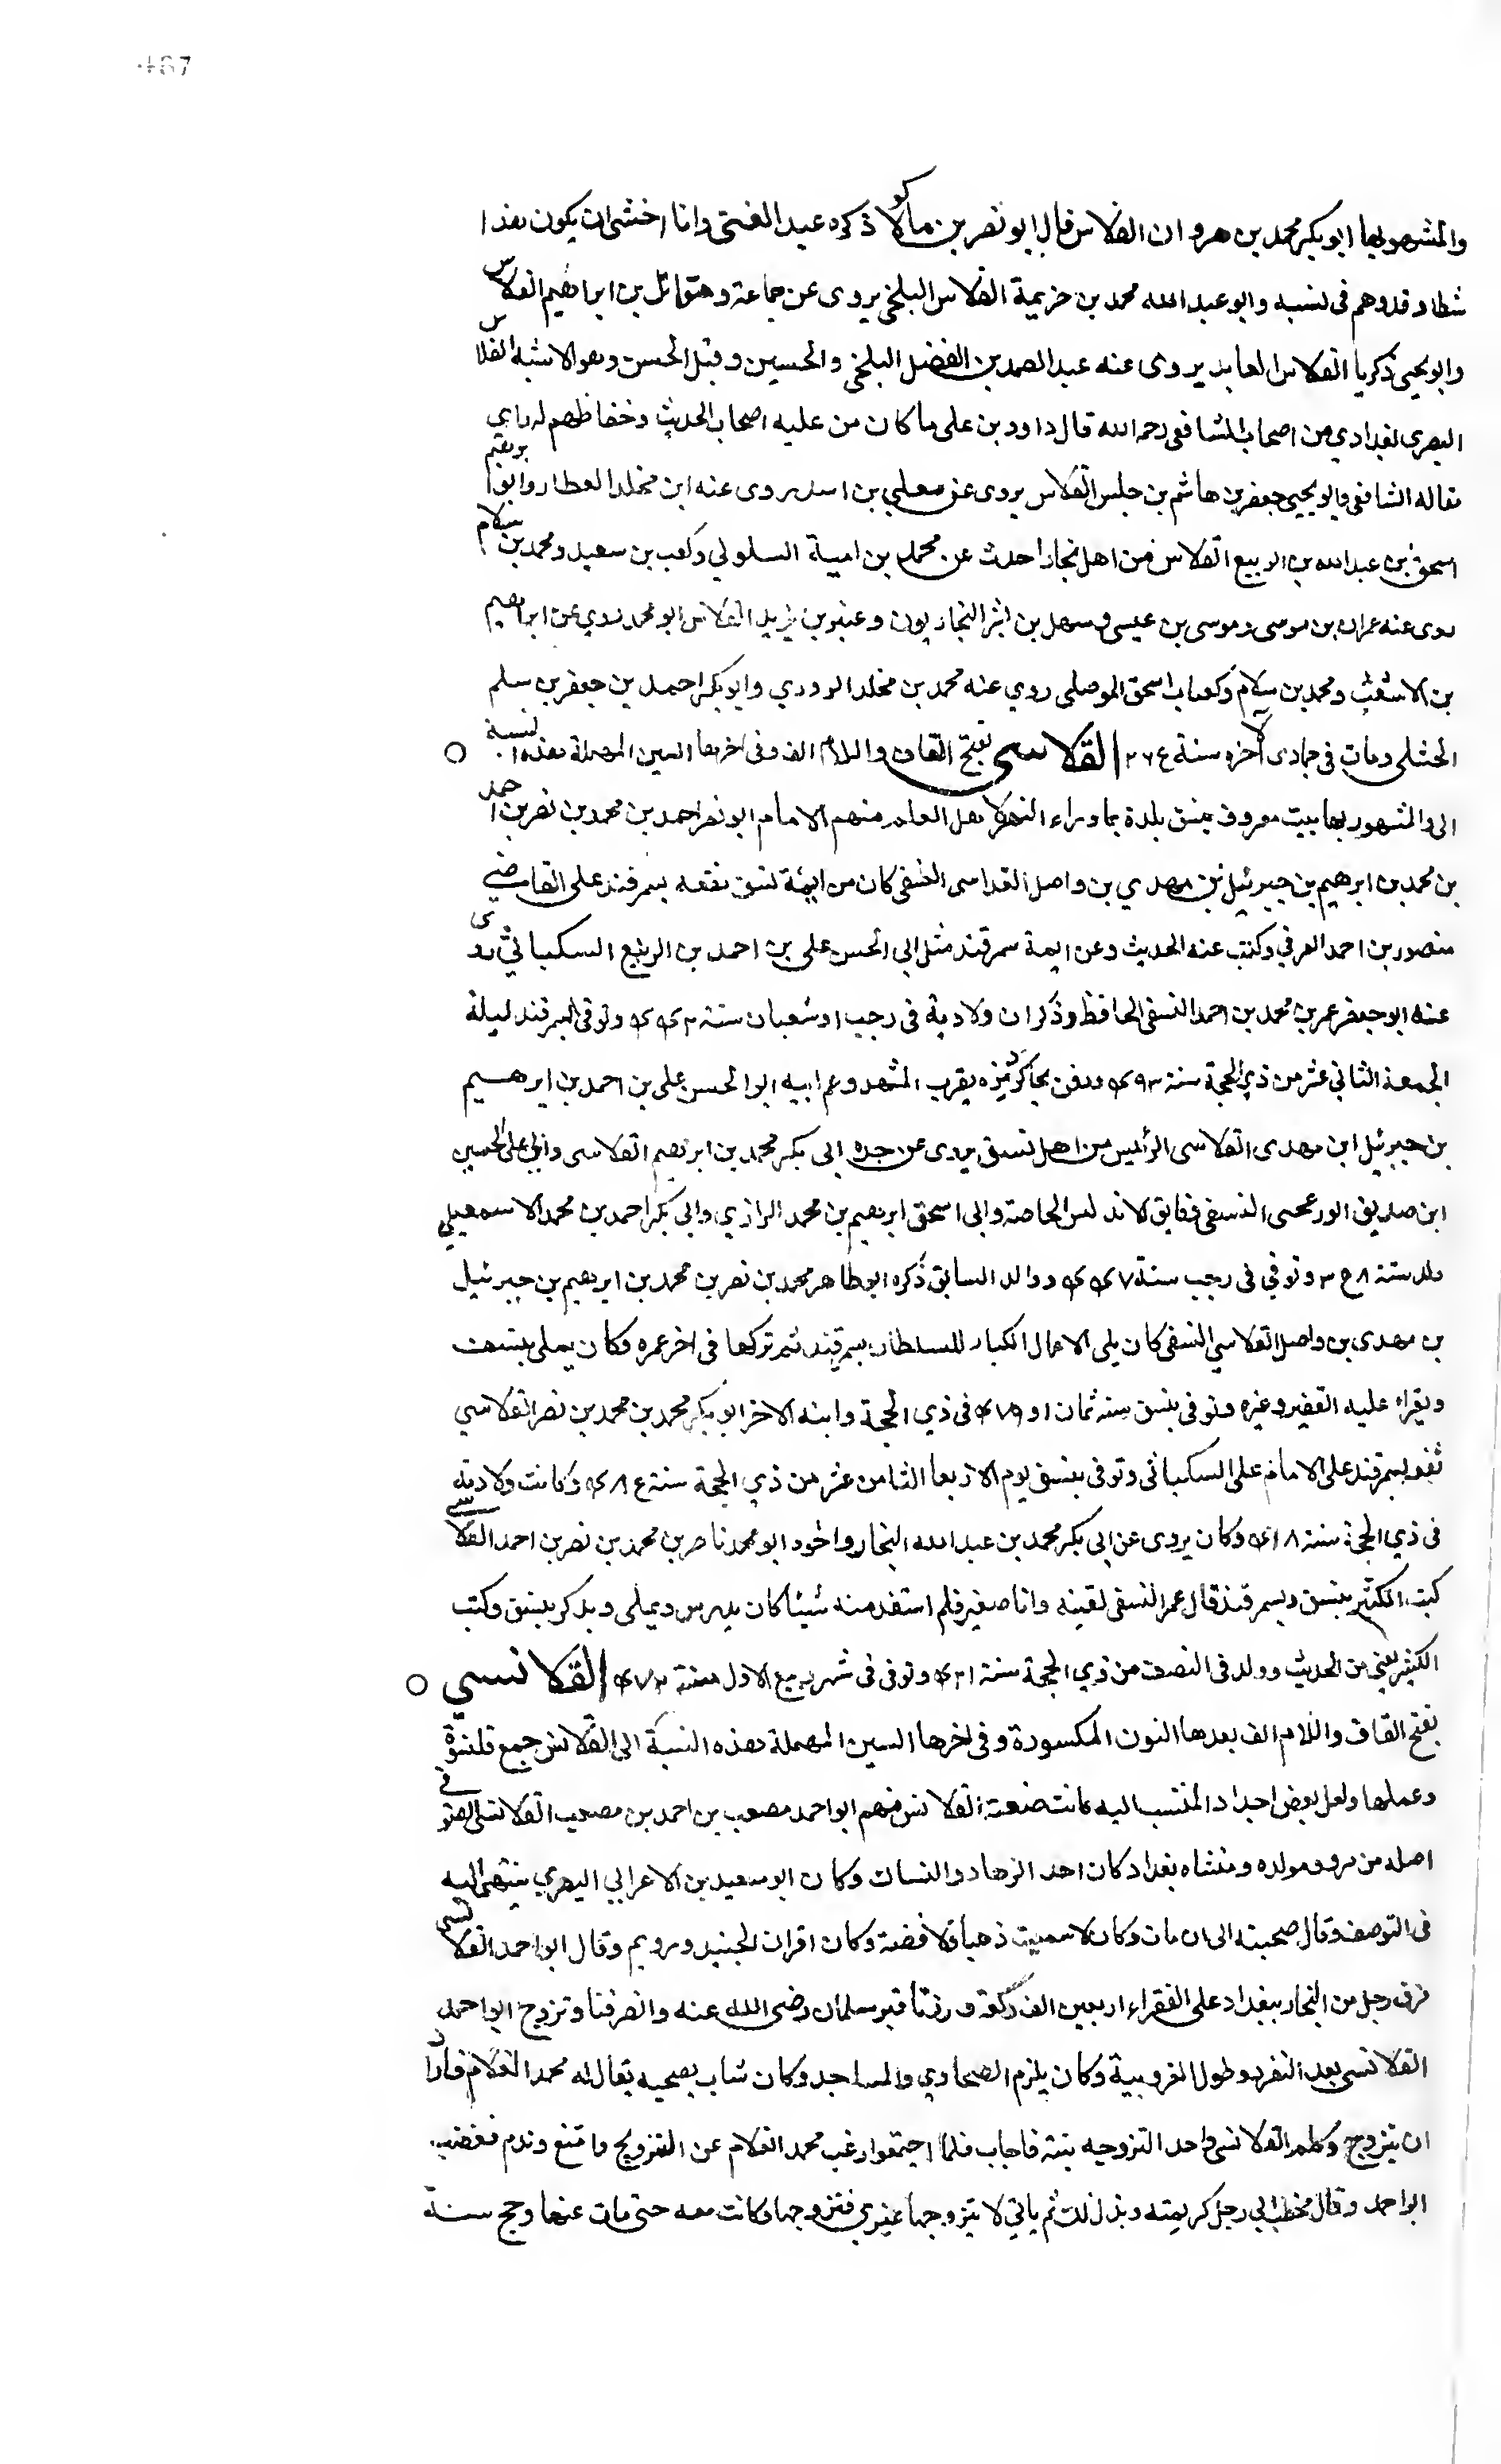 467
والمشهور بها ابو بكر محمد بن هرون الفلاس قال ابو نصر بن ماكولا ذكره عبد الغني وانا اخشى ان يكون هذا
شطا وقد وهم في نسبه وابو عبد الله محمد بن خزيمة القلاس البلخي يروى عن جماعة ومقاتل بن ابراهيم القلاس
وابو يحيى زكريا القلاس العابد يروى عنه عبد الصمد بن الفضل البلخي والحسين وقيل الحسن وهو الاشبه الفلاس
البصرى البغدادي من اصحاب الشافعى رحمه الله قال داود بن على ما كان من عليه اصحاب الحديث وحفاظهم له راى
مقاله الشافعي وابو يحيى جعفر بن هاشم بن القلاس يروى عن معلي بن اسد روى عنه ابن مخلد العطار وابو ابرهيم
اسحق بن عبد الله بن الربيع القلاس من اهل بخارا حدث عن محمد بن امية السلولي وكعب بن سعيد ومحمد بن سلام
روى عنه عمران بن موسى وموسى بن عيسى وسهل بن بشر البخاريون وعنبر بن يزيد القلاس ابو محمد روي عن ابراهيم
بن الاشعث ومحمد بن سلام وكعب اسحق الموصلى روي عنه محمد بن مخلد الدوري وابو بكر احمد بن جعفر بن سلم
الختلى ومات في جمادى الاخره سنة القلاسي بفتح القاف واللام الف وفى اخرها السين المهملة هذه النسبة
الى والمشهور بها بيت معروف بنسف بلدة بما وراء النهر اهل العلم منهم الامام ابو نصر احمد بن محمد بن نصر بن احمد
بن محمد بن ابرهيم بن جبرئيل بن مهدي بن واصل القلاسى النسفى كان من ايمة نسف تفقه بسمرقند على القاضي
منصور بن احمد الغرفي وكتب عنه الحديث وعن ايمة سمرقند مثل ابى الحسن على بن احمد بن الربيع السنكباثي روى
عنه ابو حفص عمر بن محمد بن احمد النسفى الحافظ وذكر ان ولادته فى رجب او شعبان سنة وتوفى بسمرقند ليلة
الجمعة الثاني عشر من ذي الحجة سنة ودفن بجاكرديزه بقرب المشهد وعم ابيه ابو الحسن على بن احمد بن ابرهيم
بن جبرئيل ابن مهدى القلاسى الرئيس من اهل نسف يروى عن جده ابى بكر محمد بن ابرهيم القلاسى وابى على الحسين
ابن صديق النسفى وابى اسحق ابرهيم بن محمد الرازي وابى بكر احمد بن محمد الاسمعيلي
ولد سنة وتوفي فى رجب سنة ووالد السابق ذكره ابو طاهر محمد بن نصر بن محمد بن ابرهيم بن جبرئيل
بن مهدى بن واصل القلاسي النسفى كان يلى الاعمال الكبار للسلطان بسمرقند ثم تركها فى اخر عمره وكان يملى بنسف
ويقراء عليه التفسير وغيره وتوفى بنسف سنة ثمان او فى ذي الحجة وابنه الاخر ابو بكر محمد بن محمد بن نصر القلاسي
تفقه بسمرقند على الامام على السنكباثى وتوفى بنسف يوم الاربعا الثامن عشر من ذي الحجة سنة وكانت ولادته
فى ذي الحجة سنة وكان يروى عن ابى بكر محمد بن عبد الله النجار واخوه ابو محمد ناصر بن محمد بن نصر بن احمد القلاسي
كتب الكثير بنسف وبسمرقند قال عمر النسفى لقيته وانا صغير فلم استفد منه شيئا كان يدرس ويملى ويذكر بنسف وكتب
الكثير يعني من الحديث وولد فى النصف من ذي الحجة سنة وتوفى فى شهر ربيع الاول سنة القلانسي
بفتح القاف واللام الف بعدها النون المكسورة وفى اخرها السين المهملة هذه النسبة الى القلانس جمع قلنسوة
وعملها ولعل بعض اجداد المنتسب اليه كانت صنعته القلانس منهم ابو احمد مصعب بن احمد بن مصعب القلانسى الصوفي
اصله من مرو ومولده ومنشاه بغداد كان احد الزهاد والنساك وكان ابو سعيد بن الاعرابي البصري ينتهى اليه
فى التوصف وقال صحبته الى ان مات وكان لا يبيت ذهبا ولا فضة وكان اقران الجنيد ورويم وقال ابو احمد القلانسى
فرق رجل من التجار ببغداد على الفقراء اربعين الف ركعة وزرنا قبر سلمان رضى الله عنه وانصرفنا وتزوج ابو احمد
القلانسى بعد التفرد وطول الغروبية وكان يلزم الصحاوي والمساجد وكان شاب يصحبه يقال له محمد الغلام فاراد
ان يتزوج وكلم القلانسى واحد التزوجه بنته فاجاب فلما اجتمعوا رغب محمد الغلام عن التزويج وامتنع وندم فغضب
ابو احمد وقال يخطب الى رجل كريمته وبذل لك ثم ياتي لا يتزوجها غيري فتزوجها وكانت معه حتى مات عنها وحج سنة